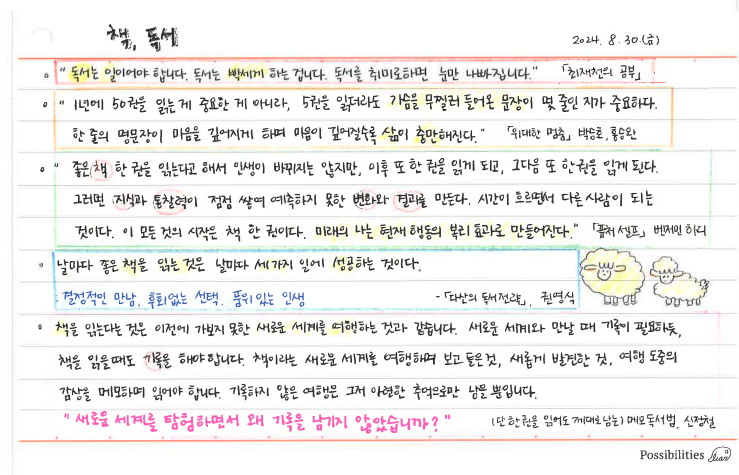 책, 독서
2024. 8. 30.(금)
"독서는 일이어야 합니다. 독서는 빡세게 하는 겁니다. 독서를 취미로하면 눈만 나빠집니다." 「최재천의 공부」
"1년에 50권을 읽는 게 중요한 게 아니라, 5권을 읽더라도 가슴을 무찔러 들어온 문장이 몇 줄인 지가 중요하다.
한 줄의 명문장이 마음을 깊어지게 하며 마음이 깊어질수록 삶이 충만해진다." 「위대한 멈춤」 박승오, 홍승완
"좋은 책 한 권을 읽는다고 해서 인생이 바뀌지는 않지만, 이후 또 한 권을 읽게 되고, 그다음 또 한권을 읽게 된다.
그러면 지식과 통찰력이 점점 쌓여 예측하지 못한 변화와 결과를 만든다. 시간이 흐르면서 다른 사람이 되는
것이다. 이 모든 것의 시작은 책 한 권이다. 미래의 나는 현재 행동의 복리 효과로 만들어진다." 「퓨처 셀프」 벤저민 하디
날마다 좋은 책을 읽는 것은 날마다 세 가지 일에 성공하는 것이다.
결정적인 만남, 후회없는 선택, 품위 있는 인생 -「다산의 독서전략」, 권영식
책을 읽는다는 것은 이전에 가보지 못한 새로운 세계를 여행하는 것과 같습니다. 새로운 세계와 만날 때 기록이 필요하듯,
책을 읽을 때도 기록을 해야 합니다. 책이라는 새로운 세계를 여행하며 보고 들은 것, 새롭게 발견한 것, 여행 도중의
감상을 메모하며 읽어야 합니다. 기록하지 않은 여행은 그저 아련한 추억으로만 남을 뿐입니다.
"새로운 세계를 탐험하면서 왜 기록을 남기지 않았습니까?" (단 한 권을 읽어도 제대로 남는) 메모 독서법, 신정철
Possibilities